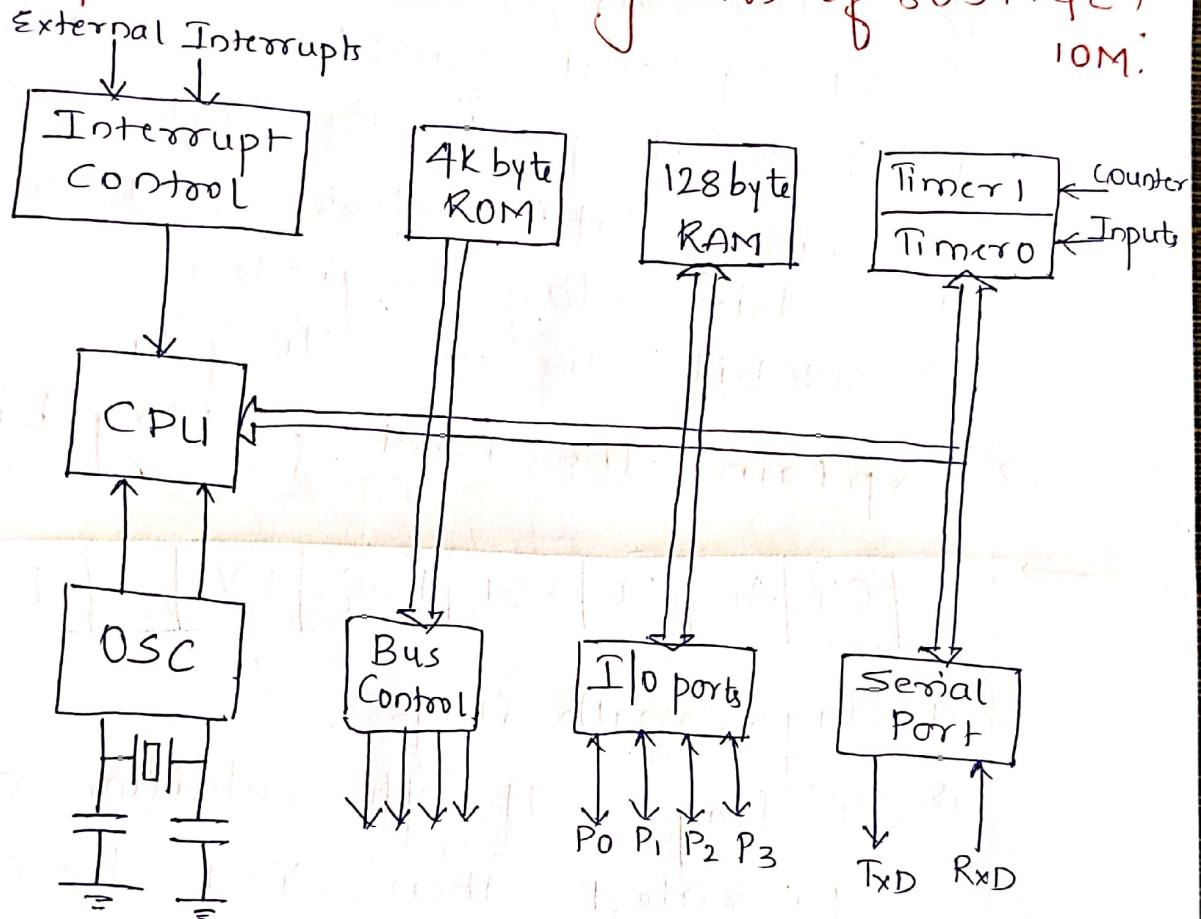 10M:
External Interrupts
Interrupt
Control
4K byte
ROM
128 byte
RAM
Timer 1
Timer 0
Counter
Inputs
CPU
OSC
Bus
Control
I/O ports
Serial
Port
P0 P1 P2 P3
TxD RxD